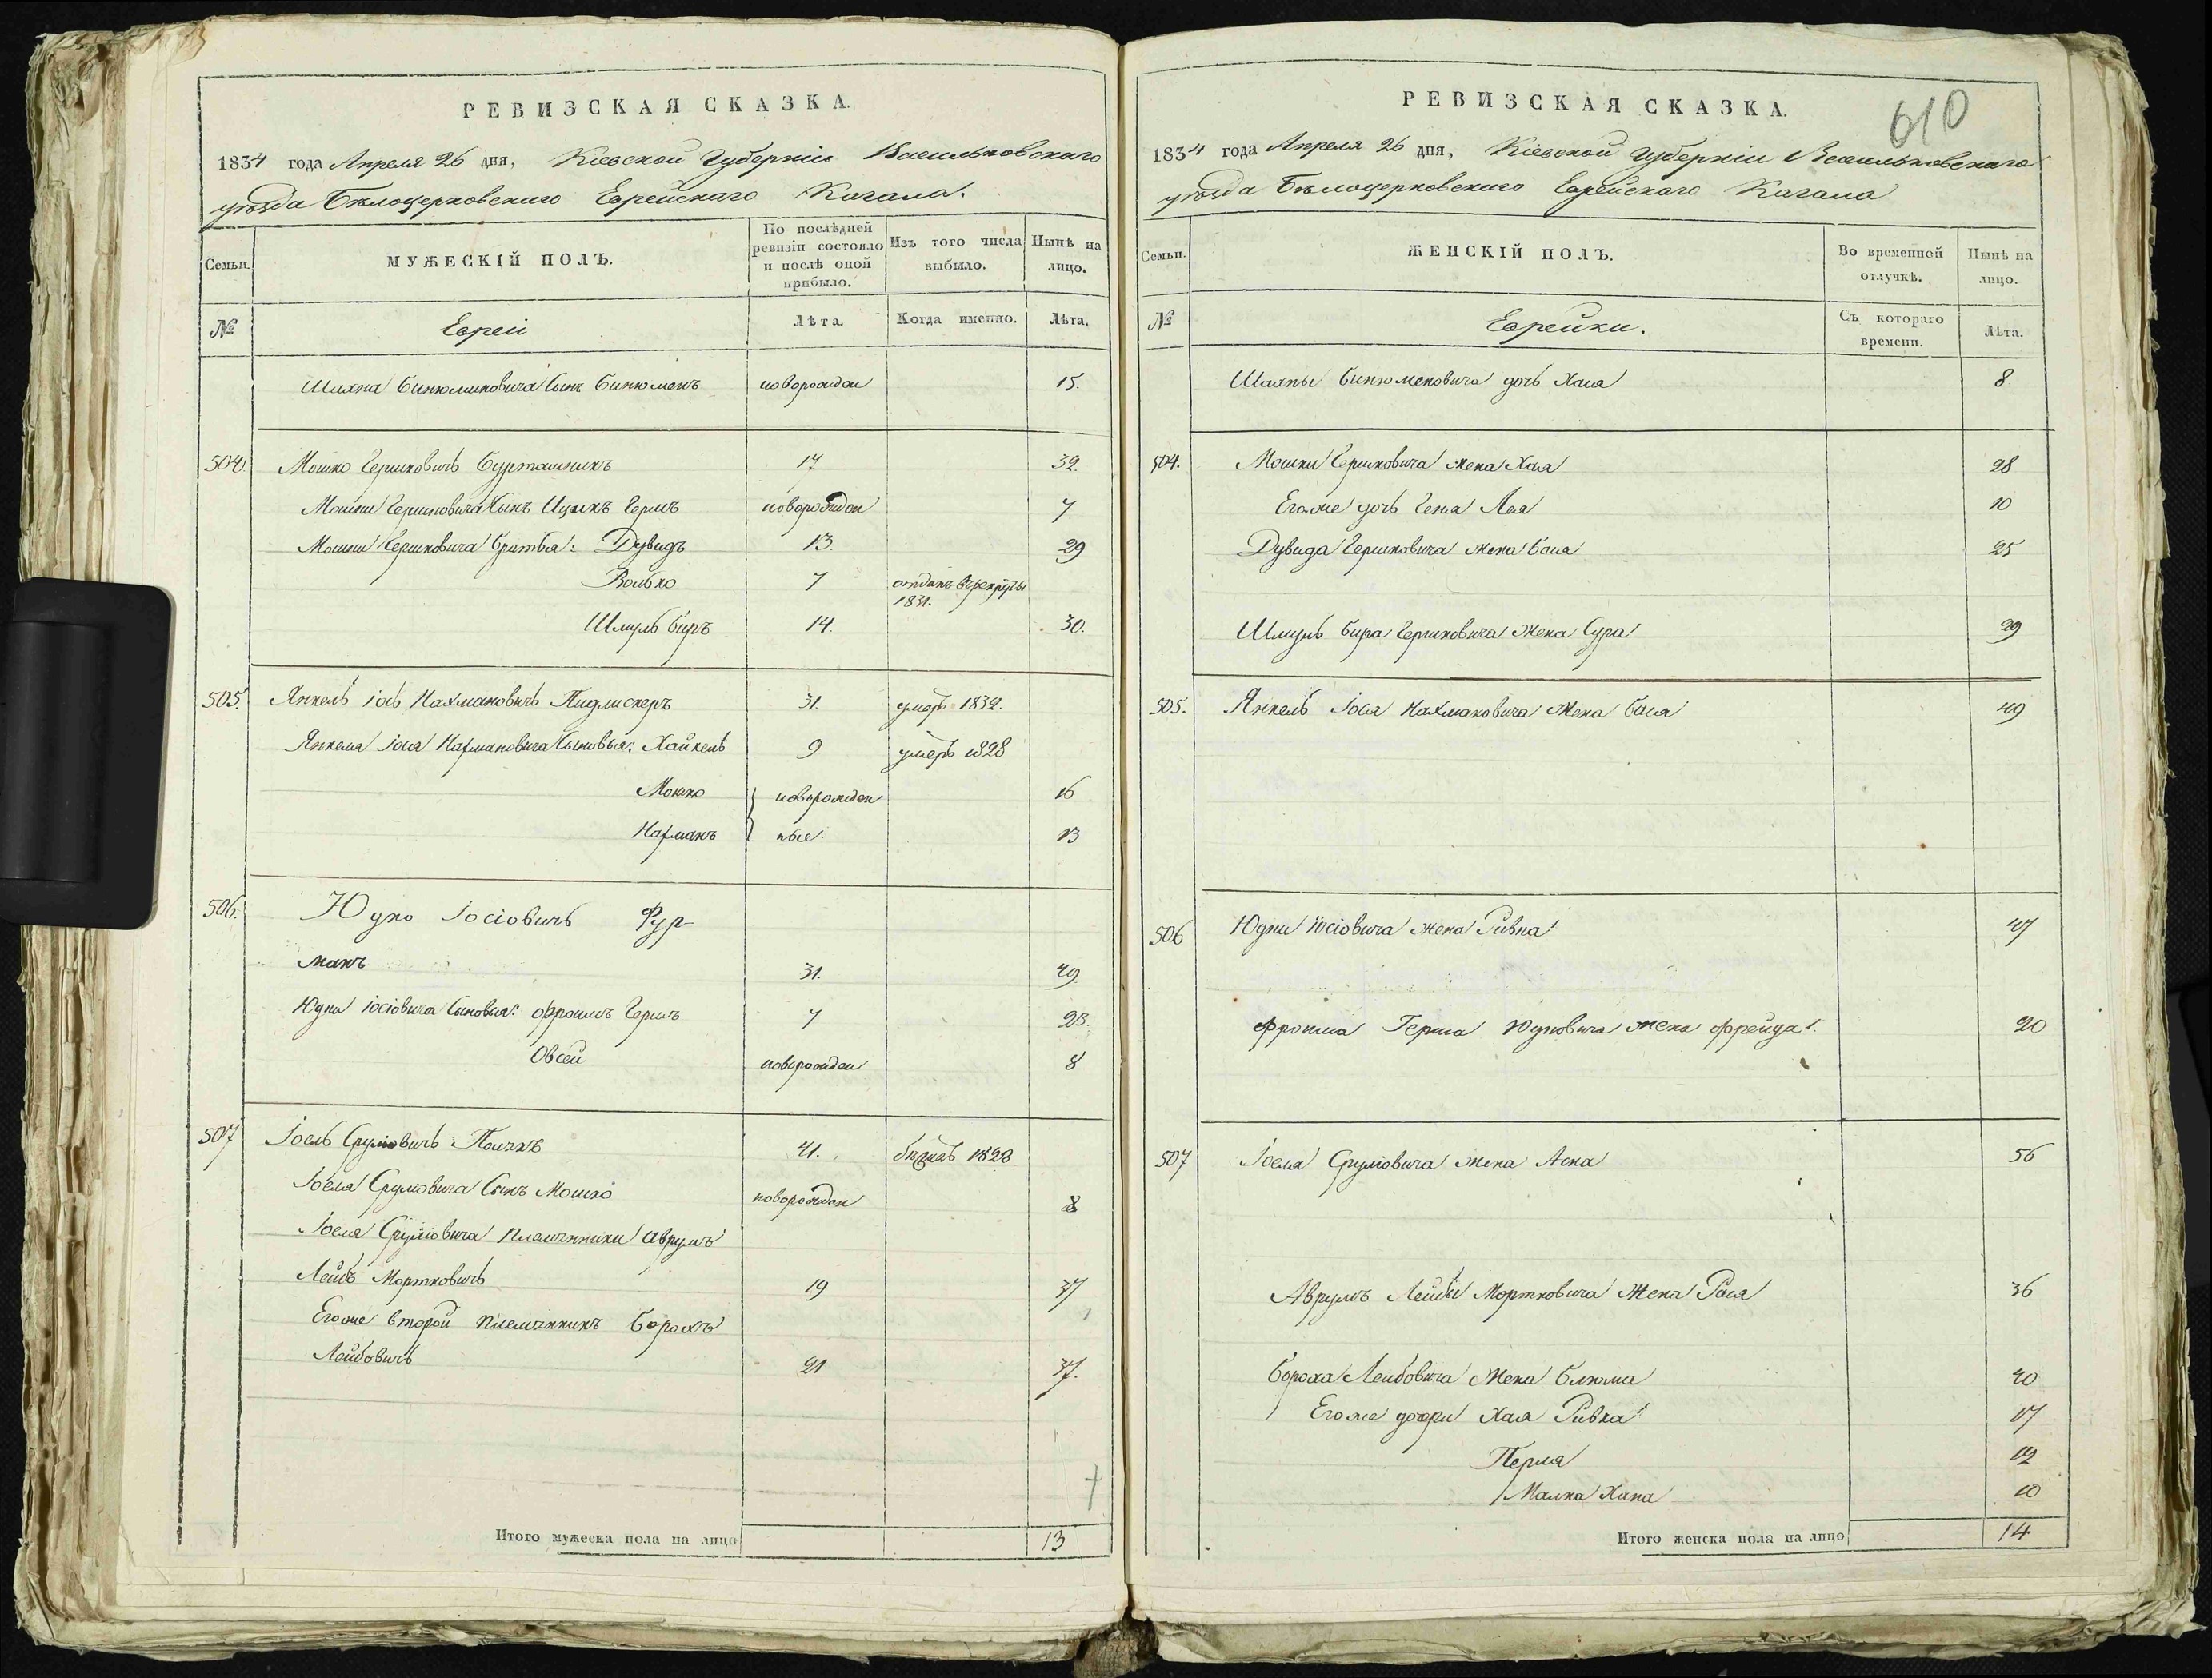 РЕВИЗСКАЯ СКАЗКА.
1834 года Апреля 26 дня, Кіевской Губерніи Васильковскаго
уѣзда Бѣлоцерковскаго Еврейскаго Кагала.
Семьи.
МУЖЕСКІЙ ПОЛЪ.
По послѣдней ревизіи состояло и послѣ оной прибыло.
Изъ того числа выбыло.
Нынѣ на лицо.
№
Евреи
Лѣта.
Когда именно.
Лѣта.
Сынъ новорожден 15.
504. Мошко Гершковичъ 17 32.
Мошки Гершковича Сынъ Ицикъ Гершъ новорожден 7
Мошки Гершковича братья: Дувидъ 13. 29
Волько 7 отданъ в рекруты
1831.
Шмуль Биръ 14. 30.
505. Янкель Іось Нахмановичъ 31. умеръ 1832.
Янкеля Іося Нахмановича Сыновья: Хайкель 9 умеръ 1828
Мошко новорожден 16
Нахманъ ные. 13
506. Юдко Іосіовичъ Фур
манъ 31. 49
Юдки Іосіовича Сыновья: Фроимъ Гершъ 7 23.
Овсей новорожден 8
507 Іоель Сруліовичъ 41. 1828
Іоеля Сруліовича Сынъ Мошко новорожден 8
Іоеля Сруліовича племянники Аврумъ
Лейбъ Мортковичъ 19 37
Егоже второй племянникъ Борохъ
Лейбовичъ 21 37.
Итого мужеска пола на лицо 13
610
РЕВИЗСКАЯ СКАЗКА.
1834 года Апреля 26 дня, Кіевской Губерніи Васильковскаго
уѣзда Бѣлоцерковскаго Еврейскаго Кагала
Семьи.
ЖЕНСКІЙ ПОЛЪ.
Во временной отлучкѣ.
Нынѣ на лицо.
№
Еврейки.
Съ котораго времени.
Лѣта.
дочь Хая 8
504. Мошки Гершковича жена Хая 28
Егоже дочь Геня Лея 10
Дувида Гершковича жена Бася 25
Шмуль Бира Гершковича жена Сура 29
505. Янкель Іося Нахмановича жена Бася 49
506 Юдки Іосіовича жена Ривка 47
Фроима Герша Юдковича жена Фрейда 20
507 Іоеля Сруліовича жена 56
Аврумъ Лейбы Мортковича жена Рася 36
Бороха Лейбовича жена Блюма 40
Егоже дочери Хая Ривка 17
Перля 12
Малка Хана 10
Итого женска пола на лицо 14